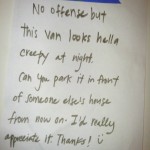 No offense but
this van looks hella
creepy at night.
Can you park it in front
of someone else's house
from now on. I'd really
appreciate it. Thanks! :)